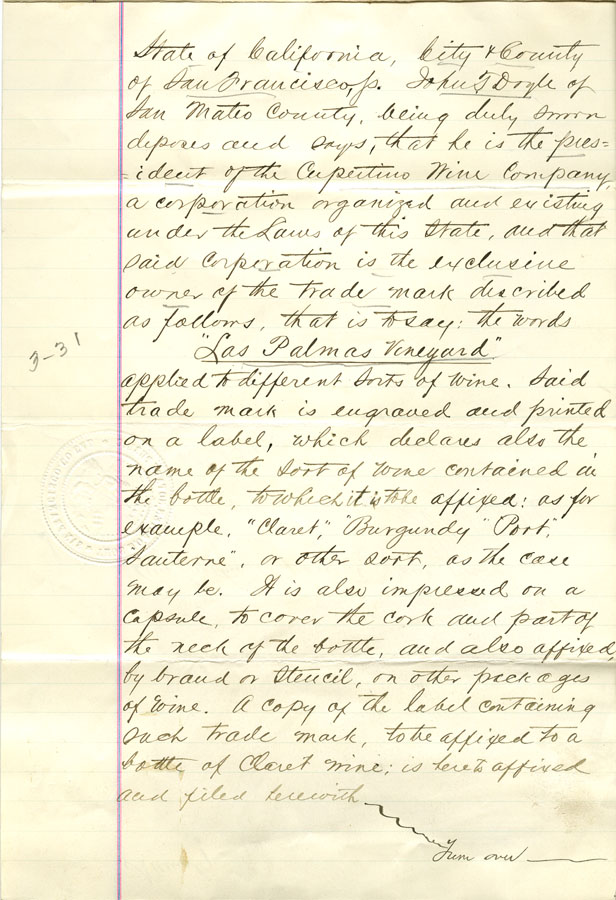 State of California, City & County
of San Francisco, ss. John T Doyle of
San Mateo County, being duly sworn
deposes and says, that he is the pres=
=ident of the Cupertino Wine Company,
a corporation organized and existing
under the Laws of this State, and that
said Corporation is the exclusive
owner of the trade mark described
as follows, that is to say: the words
"Las Palmas Vineyard"
applied to different sorts of wine. Said
trade mark is engraved and printed
on a label, which declares also the
name of the sort of wine contained in
the bottle, to which it is to be affixed: as for
example, "Claret", "Burgundy" "Port",
"Sauterne", or other sort, as the case
may be. It is also impressed on a
capsule, to cover the cork and part of
the neck of the bottle, and also affixed
by brand or stencil, on other packages
of wine. A copy of the label containing
such trade mark, to be affixed to a
bottle of Claret wine; is hereto affixed
and filed herewith
Turn over
3-31